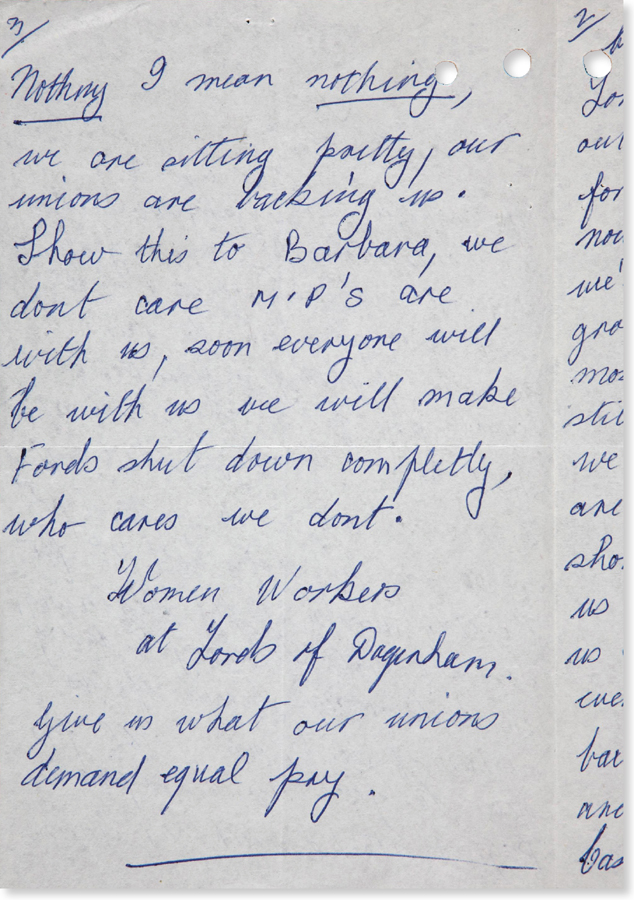 3/
Nothing I mean nothing,
we are sitting pretty, our
unions are backing us.
Show this to Barbara, we
dont care M.P'S are
with us, soon everyone will
be with us we will make
Fords shut down completly,
who cares we dont.
Women Workers
at Fords of Dagenham.
Give us what our unions
demand equal pay.
2/
out
for
we'
gra
mos
stil
we
are
sho
us
us
eve
bac
and
bas